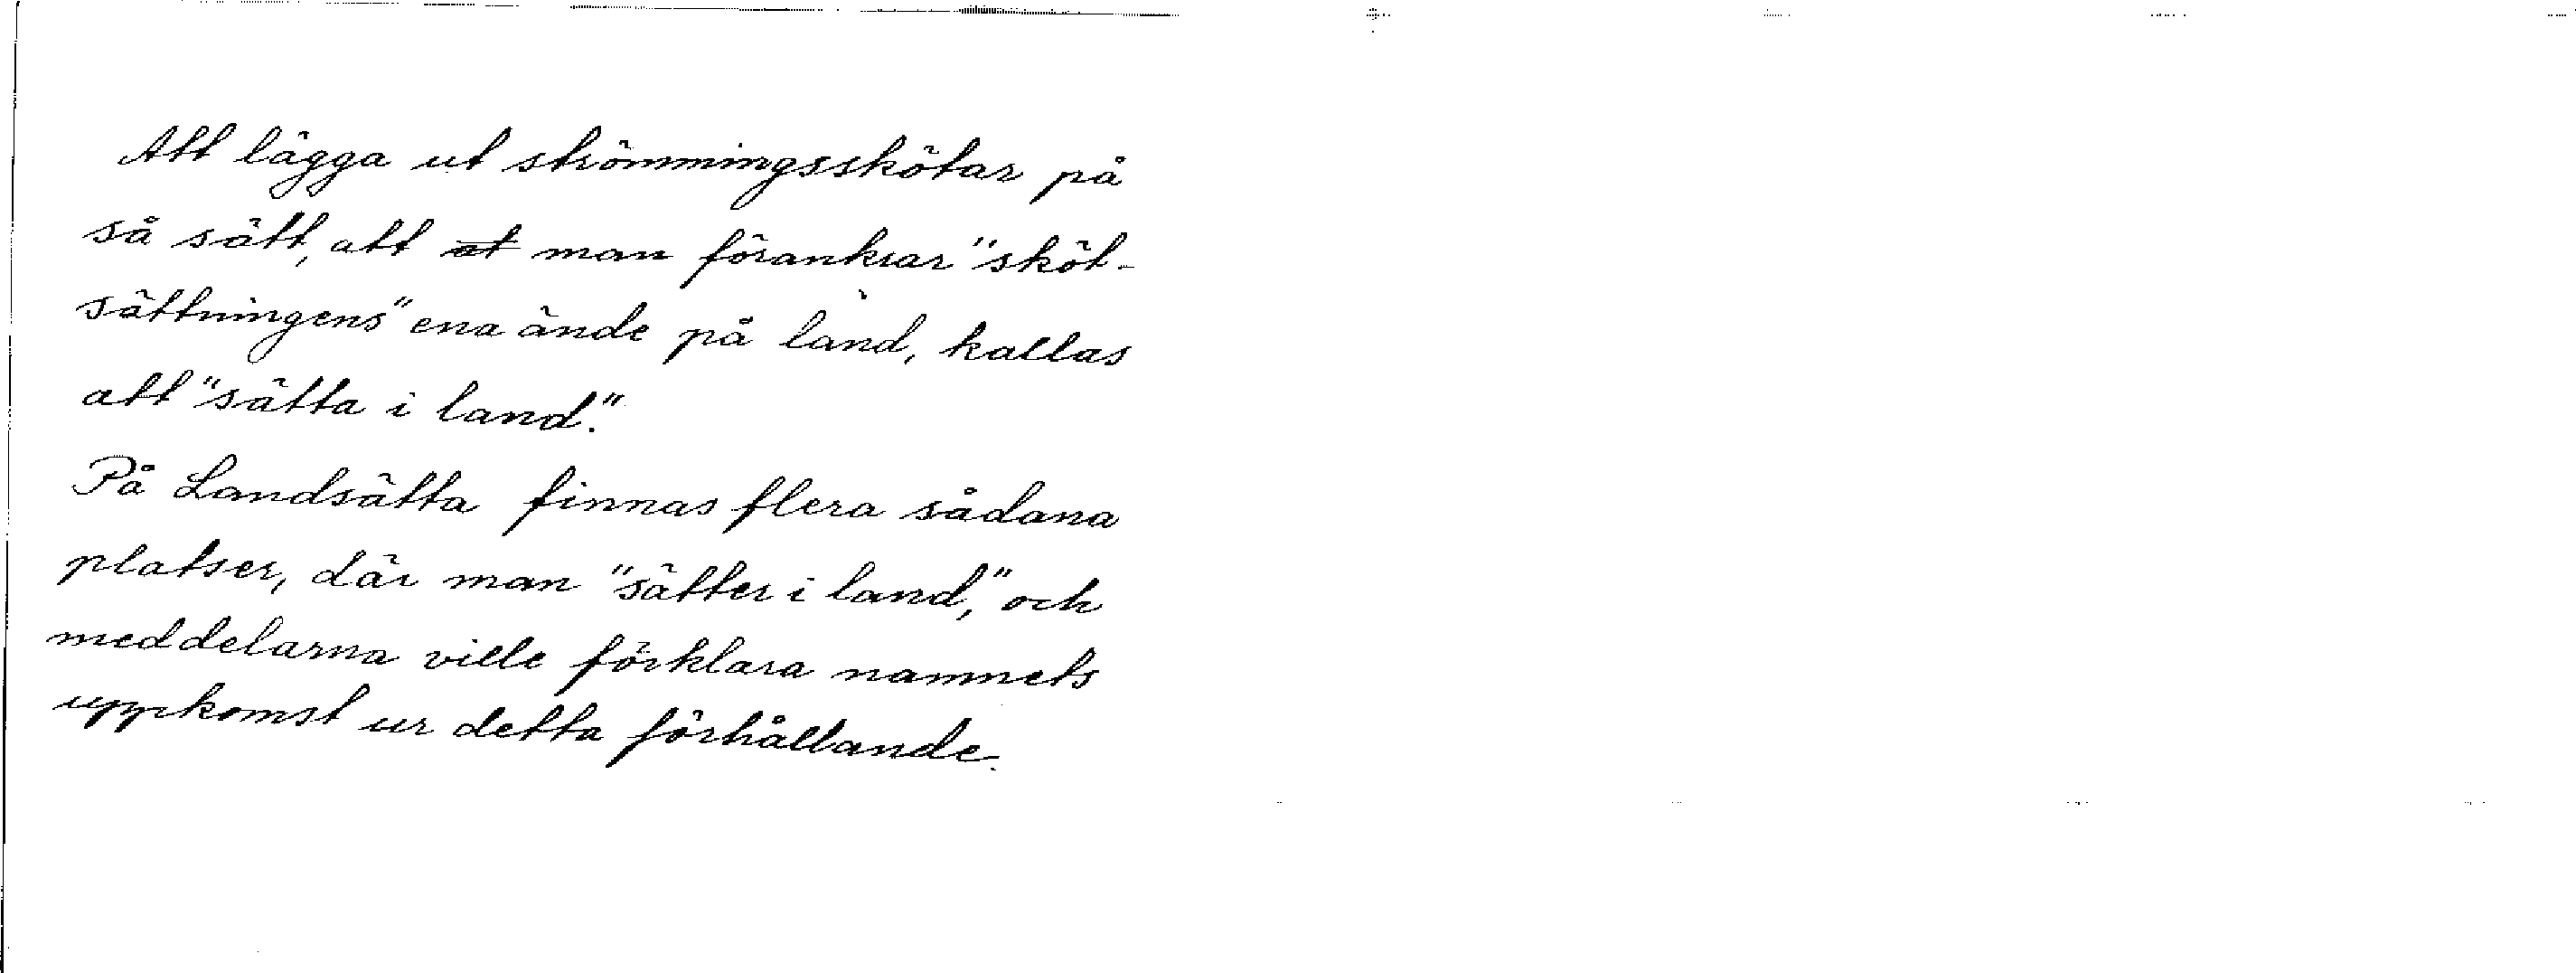 Att lägga ut strömmingsskötar på
så sätt, att at man förankrar "sköt-
sättningens" ena ände på land, kallas
att "sätta i land".
På Landsätta finnas flera sådana
platser, där man "sätter i land," och
meddelarna ville förklara namnets
uppkomst ur detta förhållande.